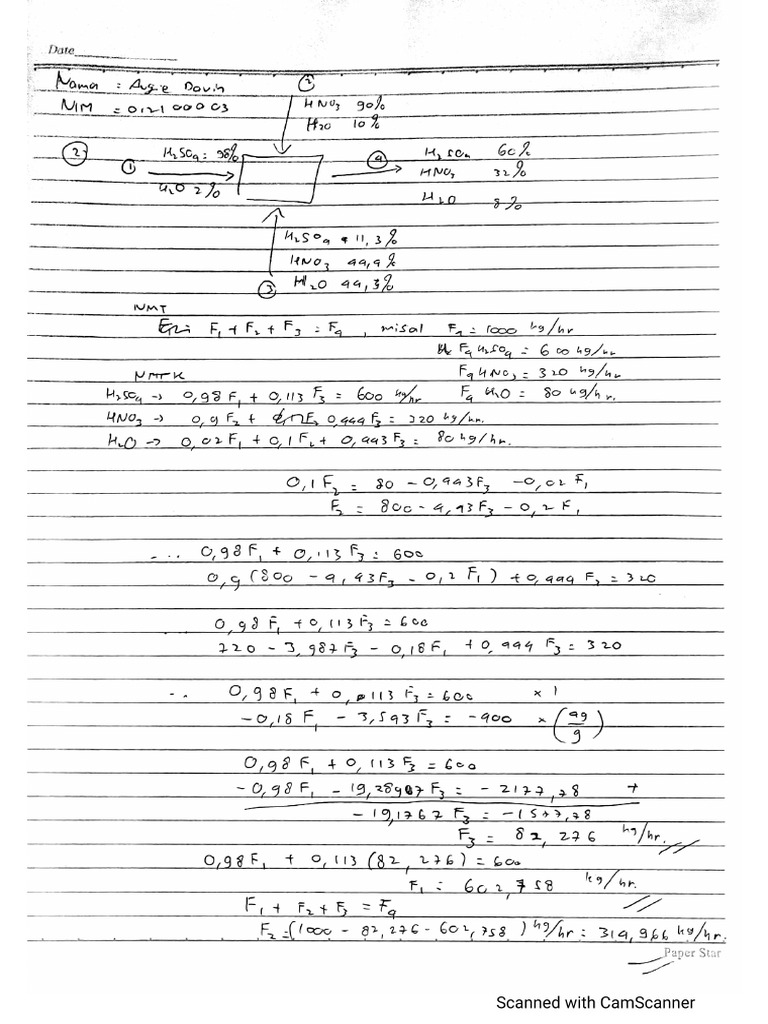 Date
Nama : Angie Davin
NIM = 012100003
②
HNO3 90%
H2O 10%
① H2SO4 = 98%
H2O 2%
④ H2SO4 60%
HNO3 32%
H2O 8%
H2SO4 11,3%
HNO3 44,4%
③ H2O 44,3%
NMT
F1 + F2 + F3 = F4 , misal F4 = 1000 kg/hr
F4 H2SO4 = 600 kg/hr
F4 HNO3 = 320 kg/hr
NMTK
H2SO4 → 0,98 F1 + 0,113 F3 = 600 kg/hr. F4 H2O = 80 kg/hr
HNO3 → 0,9 F2 + 0,444 F3 = 320 kg/hr.
H2O → 0,02 F1 + 0,1 F2 + 0,443 F3 = 80 kg/hr.
0,1 F2 = 80 - 0,443 F3 - 0,02 F1
F2 = 800 - 4,43 F3 - 0,2 F1
0,98 F1 + 0,113 F3 = 600
0,9 (800 - 4,43 F3 - 0,2 F1) + 0,444 F3 = 320
0,98 F1 + 0,113 F3 = 600
720 - 3,987 F3 - 0,18 F1 + 0,444 F3 = 320
0,98 F1 + 0,113 F3 = 600 × 1
-0,18 F1 - 3,543 F3 = -400 × (49/9)
0,98 F1 + 0,113 F3 = 600
-0,98 F1 - 19,2897 F3 = - 2177,78 +
- 19,1767 F3 = -1577,78
F3 = 82,276 kg/hr.
0,98 F1 + 0,113 (82,276) = 600
F1 = 602,758 kg/hr.
F1 + F2 + F3 = F4
F2 = (1000 - 82,276 - 602,758) kg/hr = 314,966 kg/hr.
Paper Star
Scanned with CamScanner